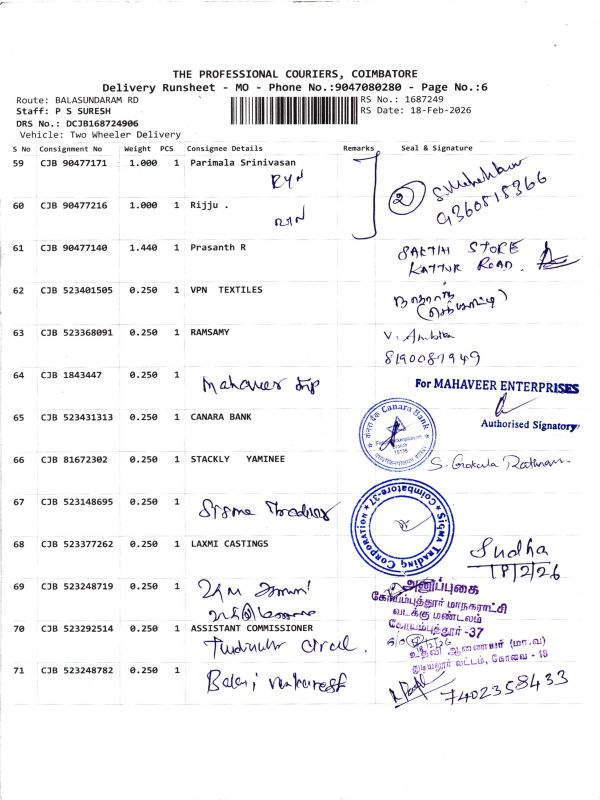 THE PROFESSIONAL COURIERS, COIMBATORE
Delivery Runsheet - MO - Phone No.:9047080280 - Page No.:6
Route: BALASUNDARAM RD
RS No.: 1687249
Staff: P S SURESH
RS Date: 18-Feb-2026
DRS No.: DCJB168724906
Vehicle: Two Wheeler Delivery
S No Consignment No Weight PCS Consignee Details Remarks Seal & Signature
59 CJB 90477171 1.000 1 Parimala Srinivasan
2
9360518366
60 CJB 90477216 1.000 1 Rijju .
61 CJB 90477140 1.440 1 Prasanth R
SAKTHI STORE
KATTUR ROAD.
62 CJB 523401505 0.250 1 VPN TEXTILES
63 CJB 523368091 0.250 1 RAMSAMY
V. Ambika
8190087949
64 CJB 1843447 0.250 1
Mahaveer
For MAHAVEER ENTERPRISES
Authorised Signatory
65 CJB 523431313 0.250 1 CANARA BANK
Canara Bank
66 CJB 81672302 0.250 1 STACKLY YAMINEE
67 CJB 523148695 0.250 1
Sigma Trading
SIGMA Trading CORPORATION Coimbatore-37
68 CJB 523377262 0.250 1 LAXMI CASTINGS
Sudha
18/2/26
69 CJB 523248719 0.250 1
அனுப்புகை
கோயம்புத்தூர் மாநகராட்சி
வடக்கு மண்டலம்
கோயம்புத்தூர் -37
70 CJB 523292514 0.250 1 ASSISTANT COMMISSIONER
Circul.
18/2/26
உதவி ஆணையர் (மா.வ)
வட்டம், கோவை - 18
71 CJB 523248782 0.250 1
Balaji Venkatesh
7402358433